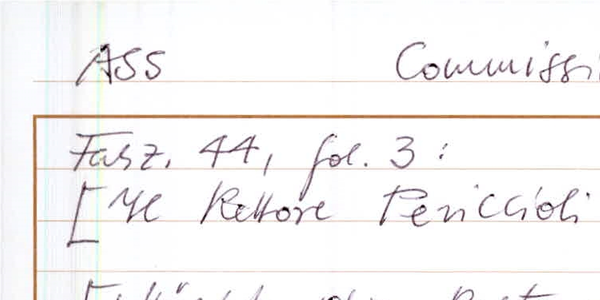 ASS Commissi
Fasz. 44, fol. 3:
[Il Rettore Periccioli